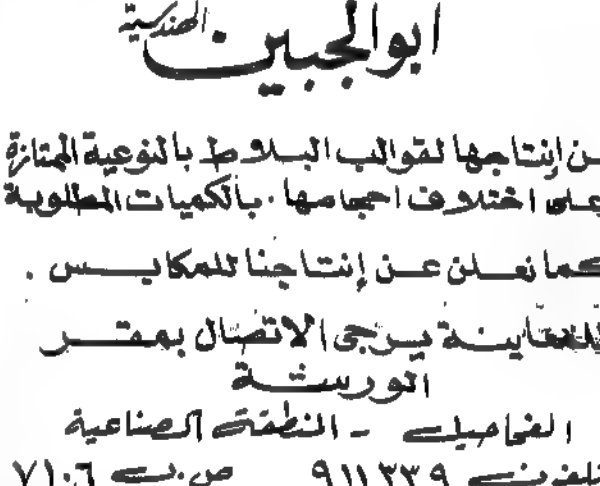 ابوالجبين الهندسية
ـن إنتاجها لقوالب البلاط بالنوعية الممتازة
على اختلاف احجامها . بالكميات المطلوبة
كما نعلن عن إنتاجنا للمكابس .
للمعاينة يرجى الاتصال بمقر
الورشة
الفحاحيل - المنطقة الصناعية
تلفون ٩١١٣٣٩ ص.ب ٧١٠٦